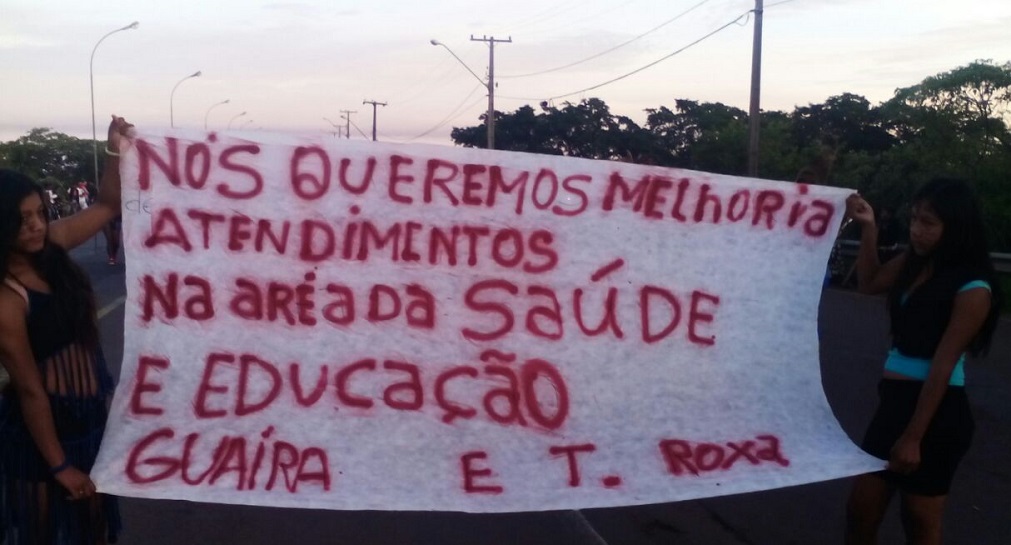 NÓS QUEREMOS MELhORia
de
ATENDiMENTOS
Na aRÉa Da SaÚDE
E EDUCaçãO
GUAÍRA E T. ROXa